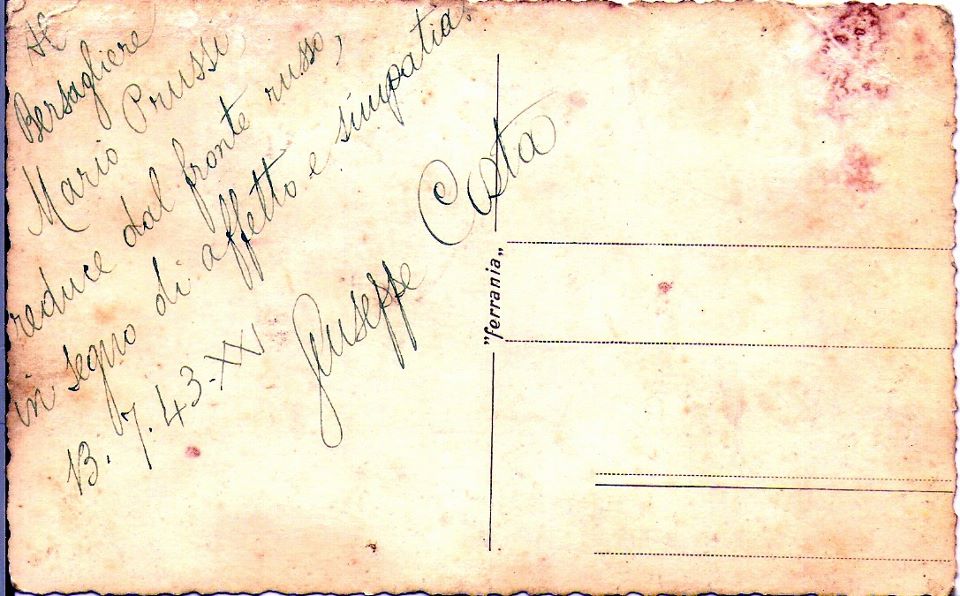 Al
Bersagliere
Mario Prussi
reduce dal fronte russo,
in segno di affetto e simpatia.
Giuseppe Costa
13.7.43-XXI
"ferrania"